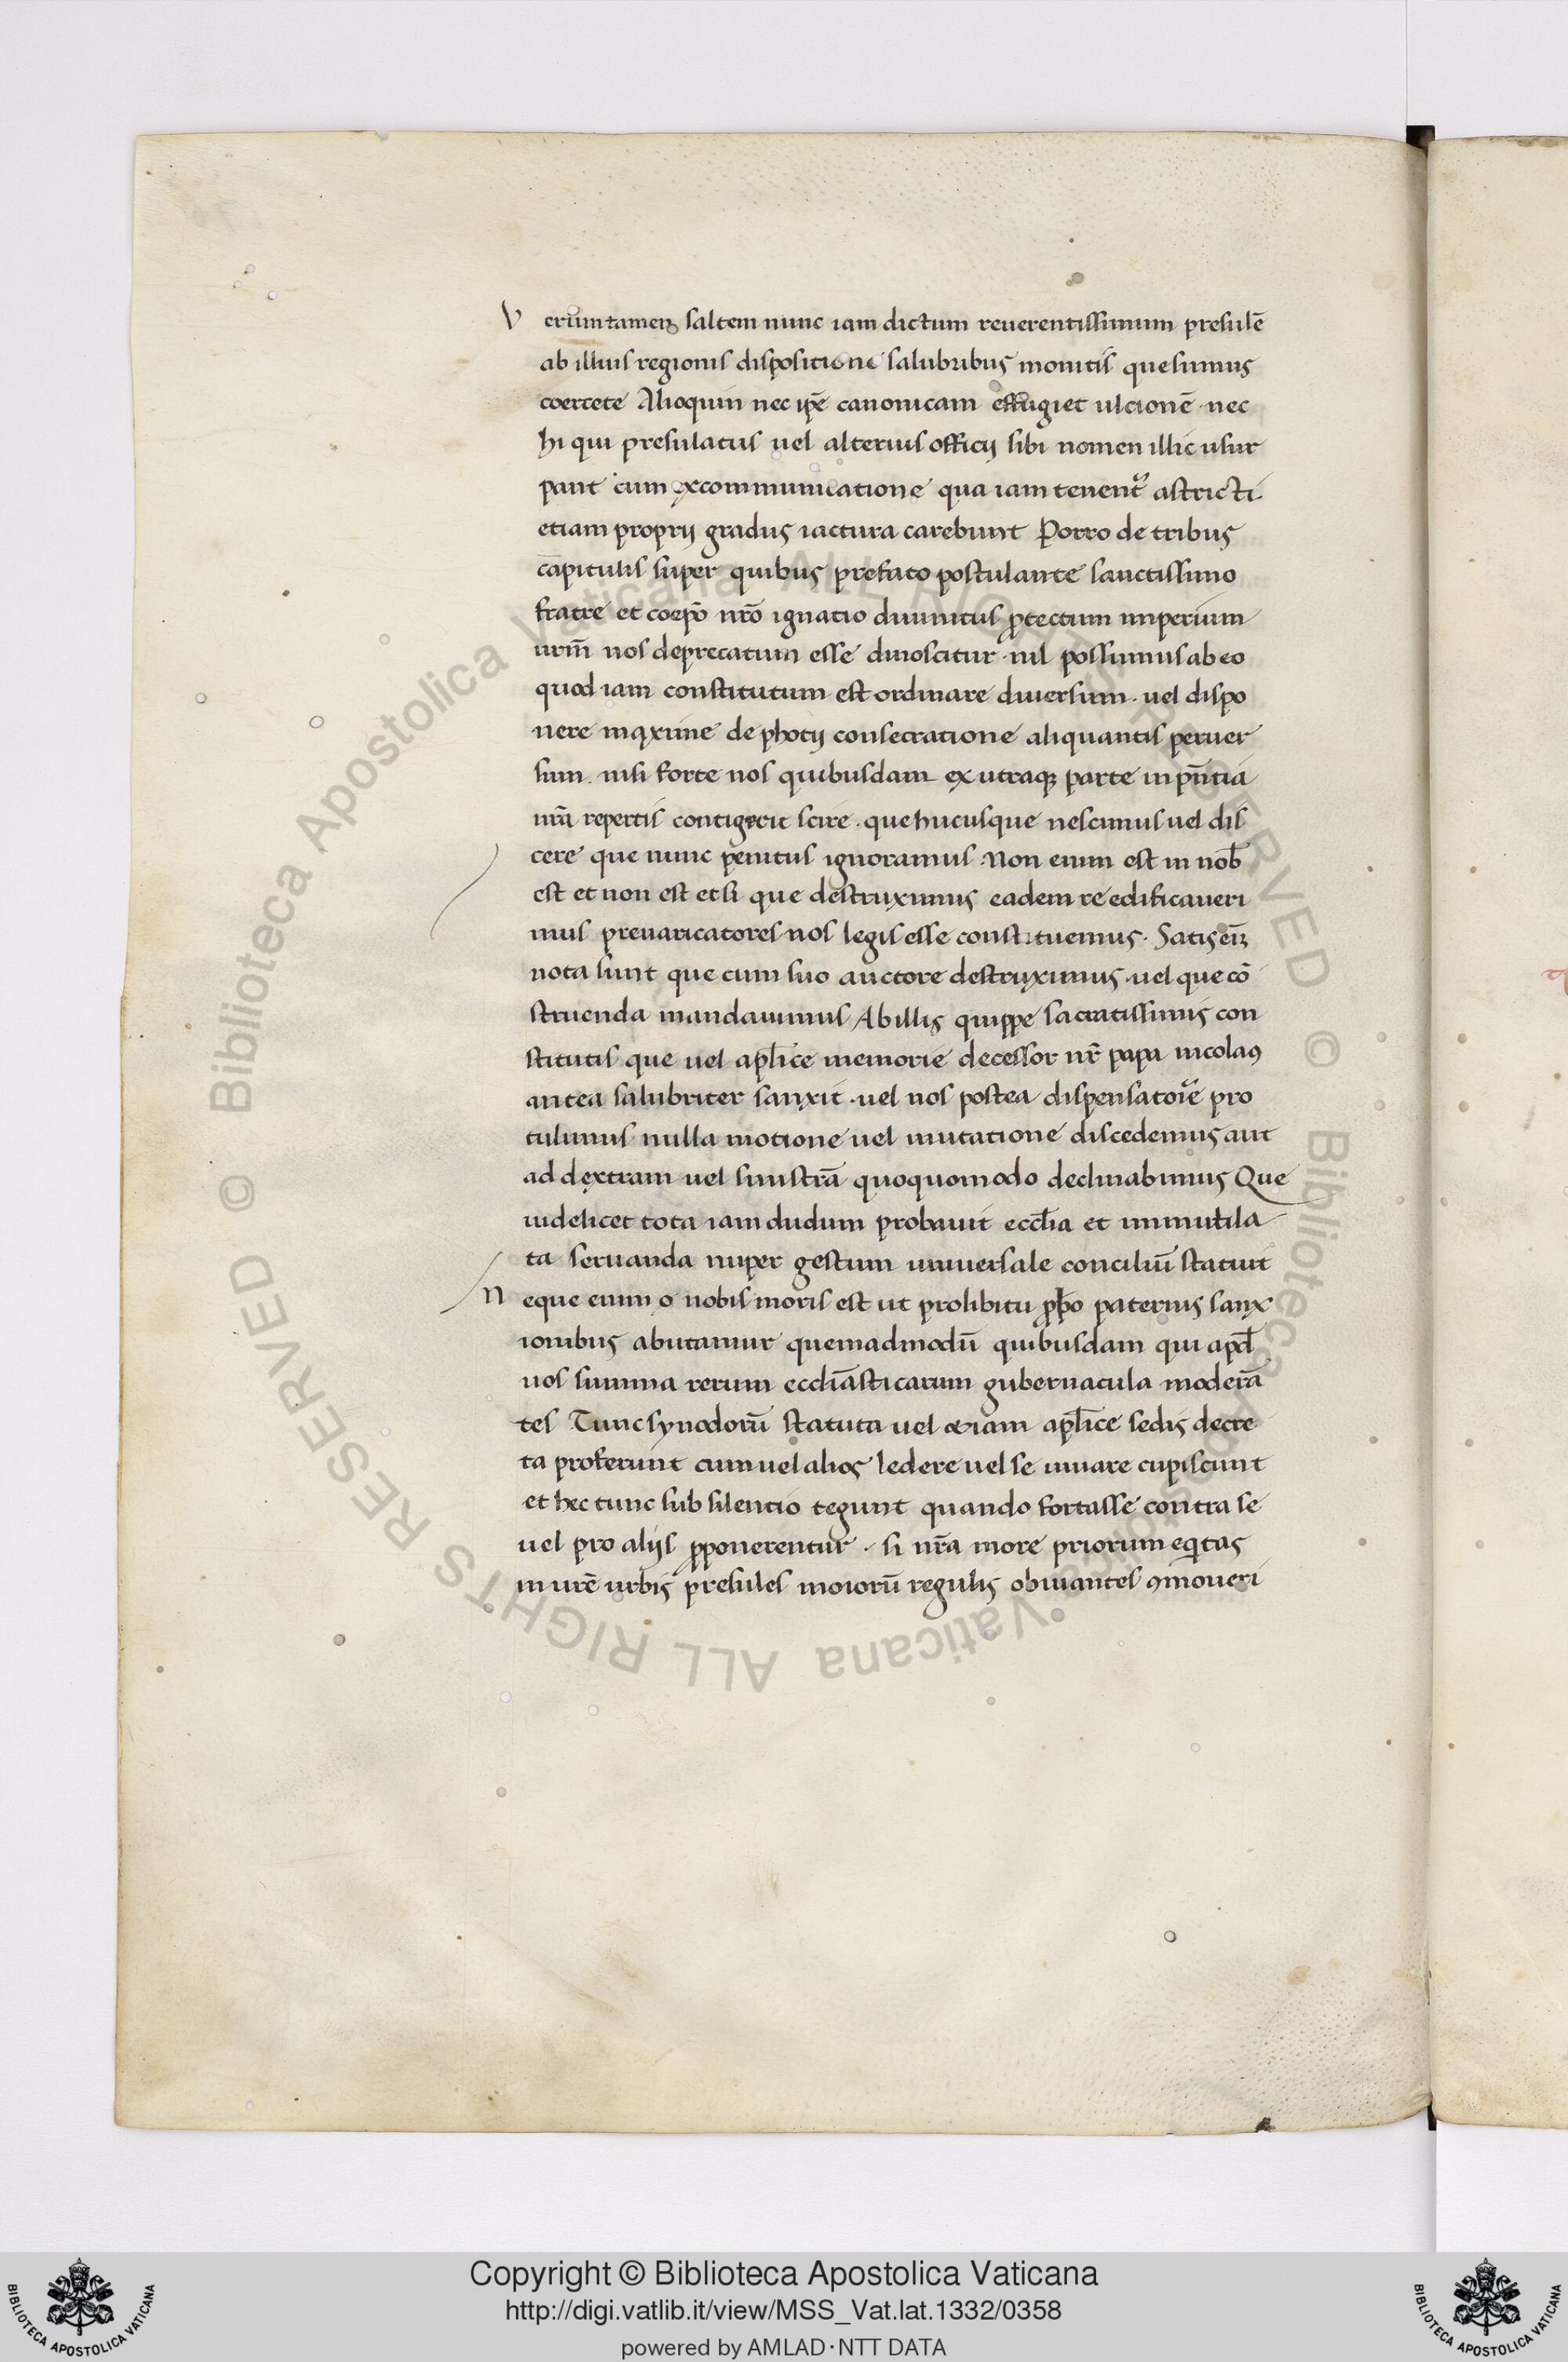 Verumtamen saltem nunc iam dictum reuerentissimum presulē
ab illius regionis dispositione salubribus monitis quesumus
coercete Alioquin nec ip̄e canonicam effugiet ulcionē nec
hi qui presulatus uel alterius officij sibi nomen illic usur
pant cum excommunicatione qua iam tenent᷑ astricti.
etiam proprij gradus iactura carebunt Porro de tribus
capitulis super quibus prefato postulante sanctissimo
fratre et coep̄o nr̄o ignatio diuinitus ꝓtectum imperium
urm̄ nos deprecatum esse dinoscitur · nil possumus ab eo
quod iam constitutum est ordinare diuersum · uel dispo
nere maxime de photij consecratione aliquantis peruer
sum . nisi forte nos quibusdam ex utraqꝫ parte in pn̄tia
nr̄a repertis contigerit scire . que hucusque nescimus uel dis
cere que nunc penitus ignoramus . Non enim est in nob̄
est et non est et si que destruximus eadem re edificaueri
mus preuaricatores nos legis esse constituemus . Satis eīꝫ
nota sunt que cum suo auctore destruximus uel que cō
struenda mandauimus Ab illis quippe sacratissimis con
stitutis que uel apl̄ice memorie decessor nr̄ papa nicolaꝰ
antea salubriter sanxit · uel nos postea dispensatorie pro
tulimus nulla motione uel mutatione discedemus aut
ad dextram uel sinistrā quoquomodo declinabimus Que
uidelicet tota iam dudum probauit eccl̄ia et immutila
ta seruanda nuper gestum uniuersale conciliū statuit
Neque enim o nobis moris est ut prolibitu ꝓp̄o paternis sanx
ionibus abutamur quemadmodū quibusdam qui apd̄
uos summa rerum eccl̄iasticarum gubernacula moderā
tes Tunc synodorū statuta uel etiam apl̄ice sedis decre
ta proferunt cum uel alios ledere uel se iuuare cupiscunt
et hec tunc sub silentio tegunt quando fortasse contra se
uel pro alijs ꝓponerentur · si nr̄a more priorum eq̄itas
in ur̄e urbis presules moiorū regulis obuiantes ꝯmoueri
Copyright © Biblioteca Apostolica Vaticana
http://digi.vatlib.it/view/MSS_Vat.lat.1332/0358
powered by AMLAD·NTT DATA
BIBLIOTECA APOSTOLICA VATICANA
BIBLIOTECA APOSTOLICA VATICANA
© Biblioteca Apostolica Vaticana ALL RIGHTS RESERVED © Biblioteca Apostolica Vaticana ALL RIGHTS RESERVED